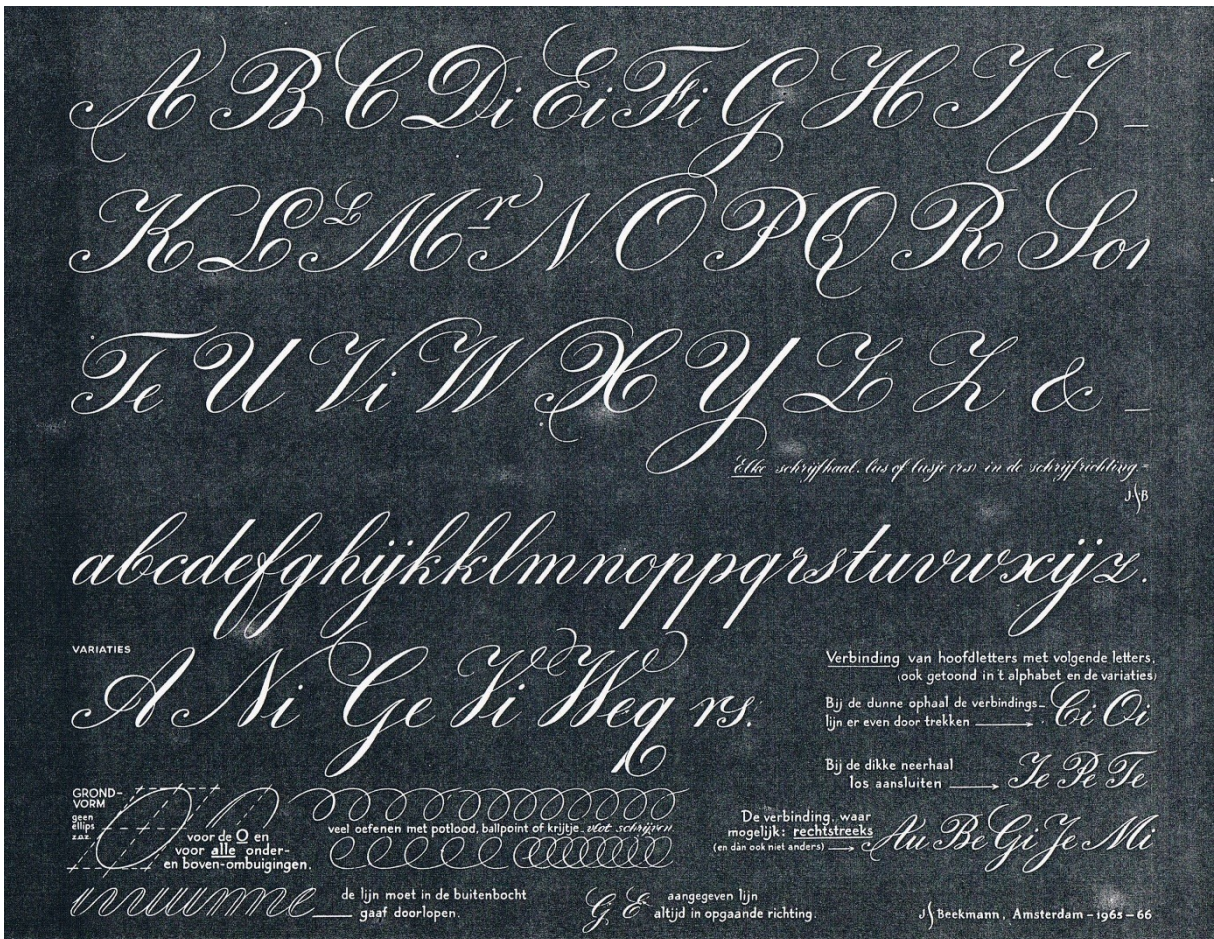 A B C Di Ei Fi G H I J
K L L Mr N O P Q R Sor
Te U Vi W X Y Z Z &
Elke schrijfhaal, lus of lusje (rs) in de schrijfrichting.
J.S B
abcdefghijkklmnoppqrstuvwxyijz.
VARIATIES
A Ni Ge Vi Weq rs.
Verbinding van hoofdletters met volgende letters,
(ook getoond in 't alphabet en de variaties)
Bij de dunne ophaal de verbindings-
lijn er even door trekken Ci Oi
Bij de dikke neerhaal
los aansluiten Ie Pe Te
De verbinding, waar
mogelijk: rechtstreeks
(en dàn ook niet anders) Au Be Gi Je Mi
GROND-
VORM
geen
ellips
z.o.z.
voor de O en
voor alle onder-
en boven-ombuigingen.
veel oefenen met potlood, ballpoint of krijtje. vlot schrijven
de lijn moet in de buitenbocht
gaaf doorlopen.
G E aangegeven lijn
altijd in opgaande richting.
J S Beekmann, Amsterdam – 1965 – 66